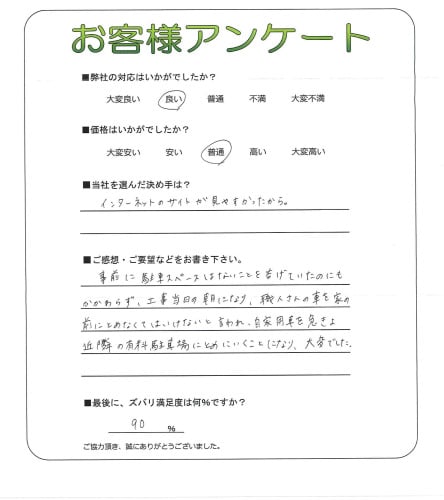 お客様アンケート
■弊社の対応はいかがでしたか?
大変良い 良い 普通 不満 大変不満
■価格はいかがでしたか?
大変安い 安い 普通 高い 大変高い
■当社を選んだ決め手は?
インターネットのサイトが見やすかったから。
■ご感想・ご要望などをお書き下さい。
事前に駐車スペースはないことを告げていたのにも
かかわらず、工事当日の朝になり、職人さんの車を家の
前にとめなくてはいけないと言われ、自家用車を急きょ
近隣の有料駐車場にとめにいくことになり、大変でした。
■最後に、ズバリ満足度は何%ですか?
90 %
ご協力頂き、誠にありがとうございました。